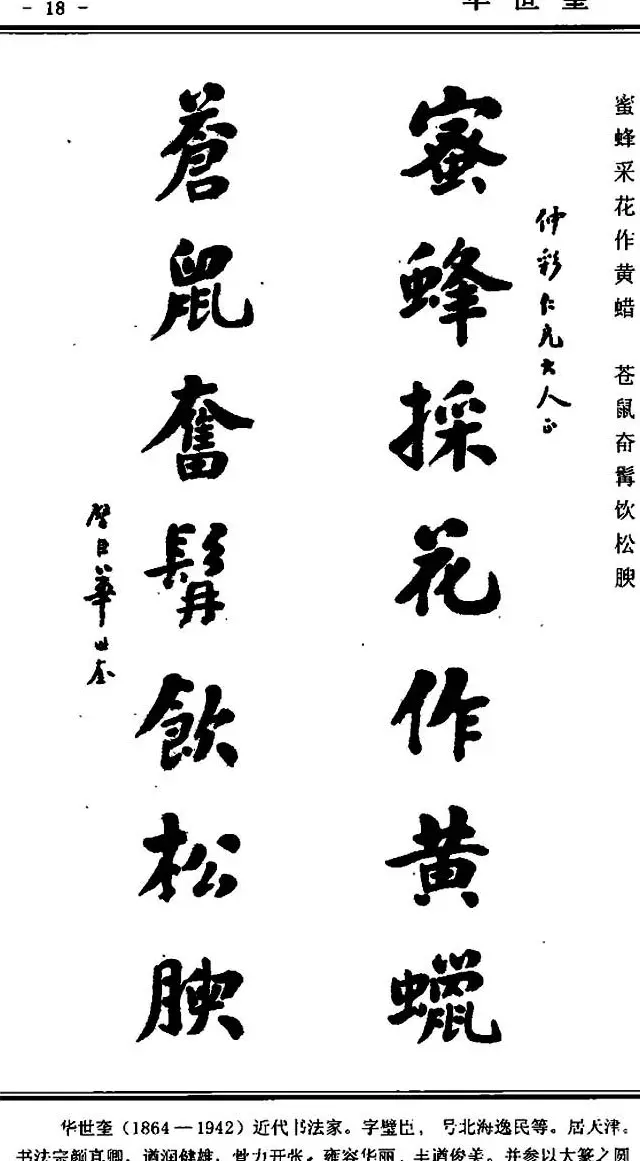 - 18 -
华世奎
蜜蜂采花作黄蜡 苍鼠奋髯饮松腴
仲彩仁兄大人正
蜜蜂採花作黄蠟
蒼鼠奮髯飲松腴
璧臣華世奎
华世奎(1864—1942)近代书法家。字璧臣,号北海逸民等。居天津。
书法宗颜真卿。遒润健雄,骨力开张。雍容华丽,丰遒俊美。并参以大篆之圆